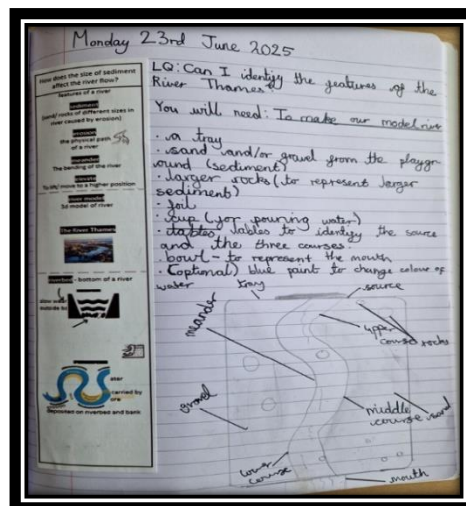 Monday 23rd June 2025
How does the size of sediment
affect the river flow?
features of a river
sediment
(sand/rocks of different sizes in
river caused by erosion)
erosion
the physical path
of a river
meander
The bending of the river
elevate
To lift/ move to a higher position
river model
3d model of river
The River Thames
riverbed - bottom of a river
carried by
deposited on riverbed and bank
LQ: Can I identify the features of the
River Thames?
You will need: To make our model river
. a tray
. sand and/or gravel from the playgr-
ound (sediment)
. larger rocks (to represent larger
sediment)
. foil
. cup (for pouring water)
. lables to identify the source
and the three courses.
. bowl - to represent the mouth
. (optional) blue paint to change colour of
water
tray
source
meander
upper
course
rocks
gravel
middle
course
sand
lower
course
mouth